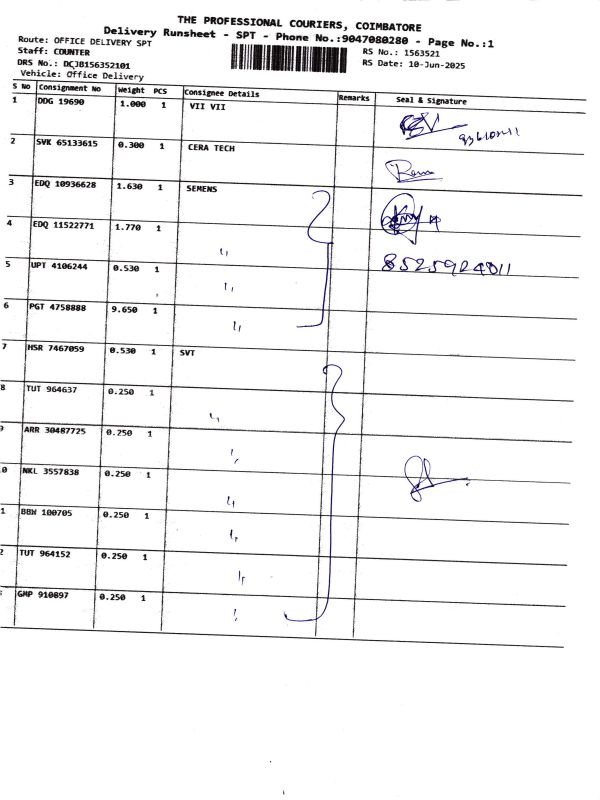 THE PROFESSIONAL COURIERS, COIMBATORE
Delivery Runsheet - SPT - Phone No.:9047080280 - Page No.:1
Route: OFFICE DELIVERY SPT
Staff: COUNTER
DRS No.: DCJ8156352101
Vehicle: Office Delivery
RS No.: 1563521
RS Date: 10-Jun-2025
S No Consignment No Weight PCS Consignee Details Remarks Seal & Signature
1 DDG 19690 1.000 1 VII VII
2 SVK 65133615 0.300 1 CERA TECH
3 EDQ 10936628 1.630 1 SEMENS
4 EDQ 11522771 1.770 1 〃
5 UPT 4106244 0.530 1 〃 8525924011
6 PGT 4758888 9.650 1 〃
7 HSR 7467059 0.530 1 SVT
8 TUT 964637 0.250 1 〃
ARR 30487725 0.250 1 〃
0 NKL 3557838 0.250 1 〃
1 BBW 100705 0.250 1 〃
2 TUT 964152 0.250 1 〃
GMP 910897 0.250 1 〃